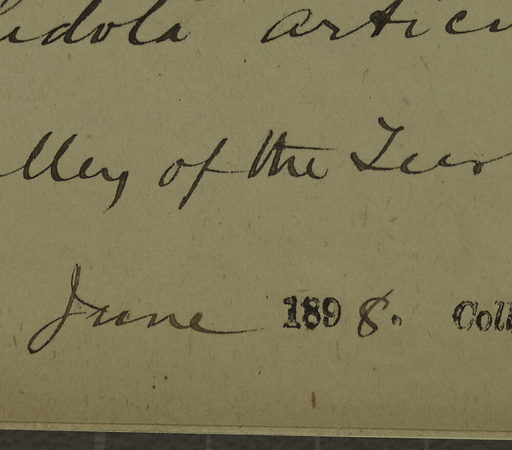 idola articu
lley of the Teer
June 1898. Coll